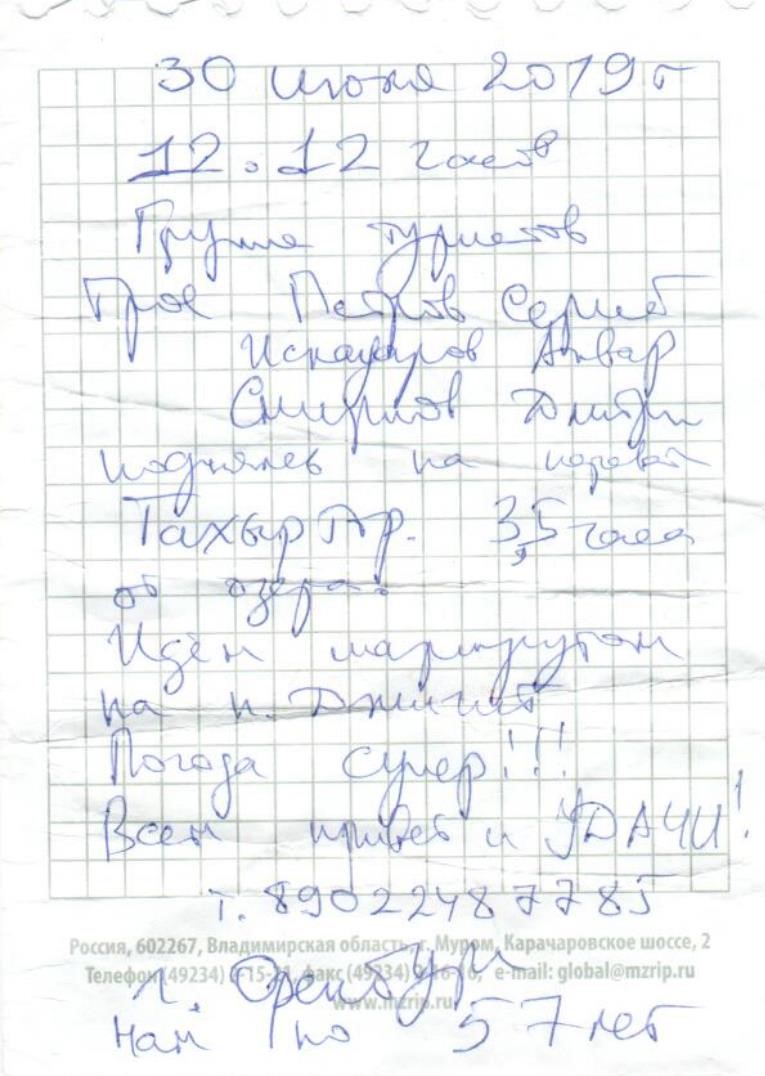 30 июня 2019 г
12.12 часов
Группа туристов
Трое Петров Сергей
Искандяров Анвар
Смирнов Дмитрий
поднялись на перевал
Тахыр Тр. 3,5 часа
от озера.
Идём маршрутом
на п. Джигит
Погода супер!!!
Всем привет и УДАЧИ!
т. 89022487785
Россия, 602267, Владимирская область, г. Муром, Карачаровское шоссе, 2
Телефон (49234) факс (49234) e-mail: global@mzrip.ru
www.mzrip.ru
г. Оренбург
Нам по 57 лет